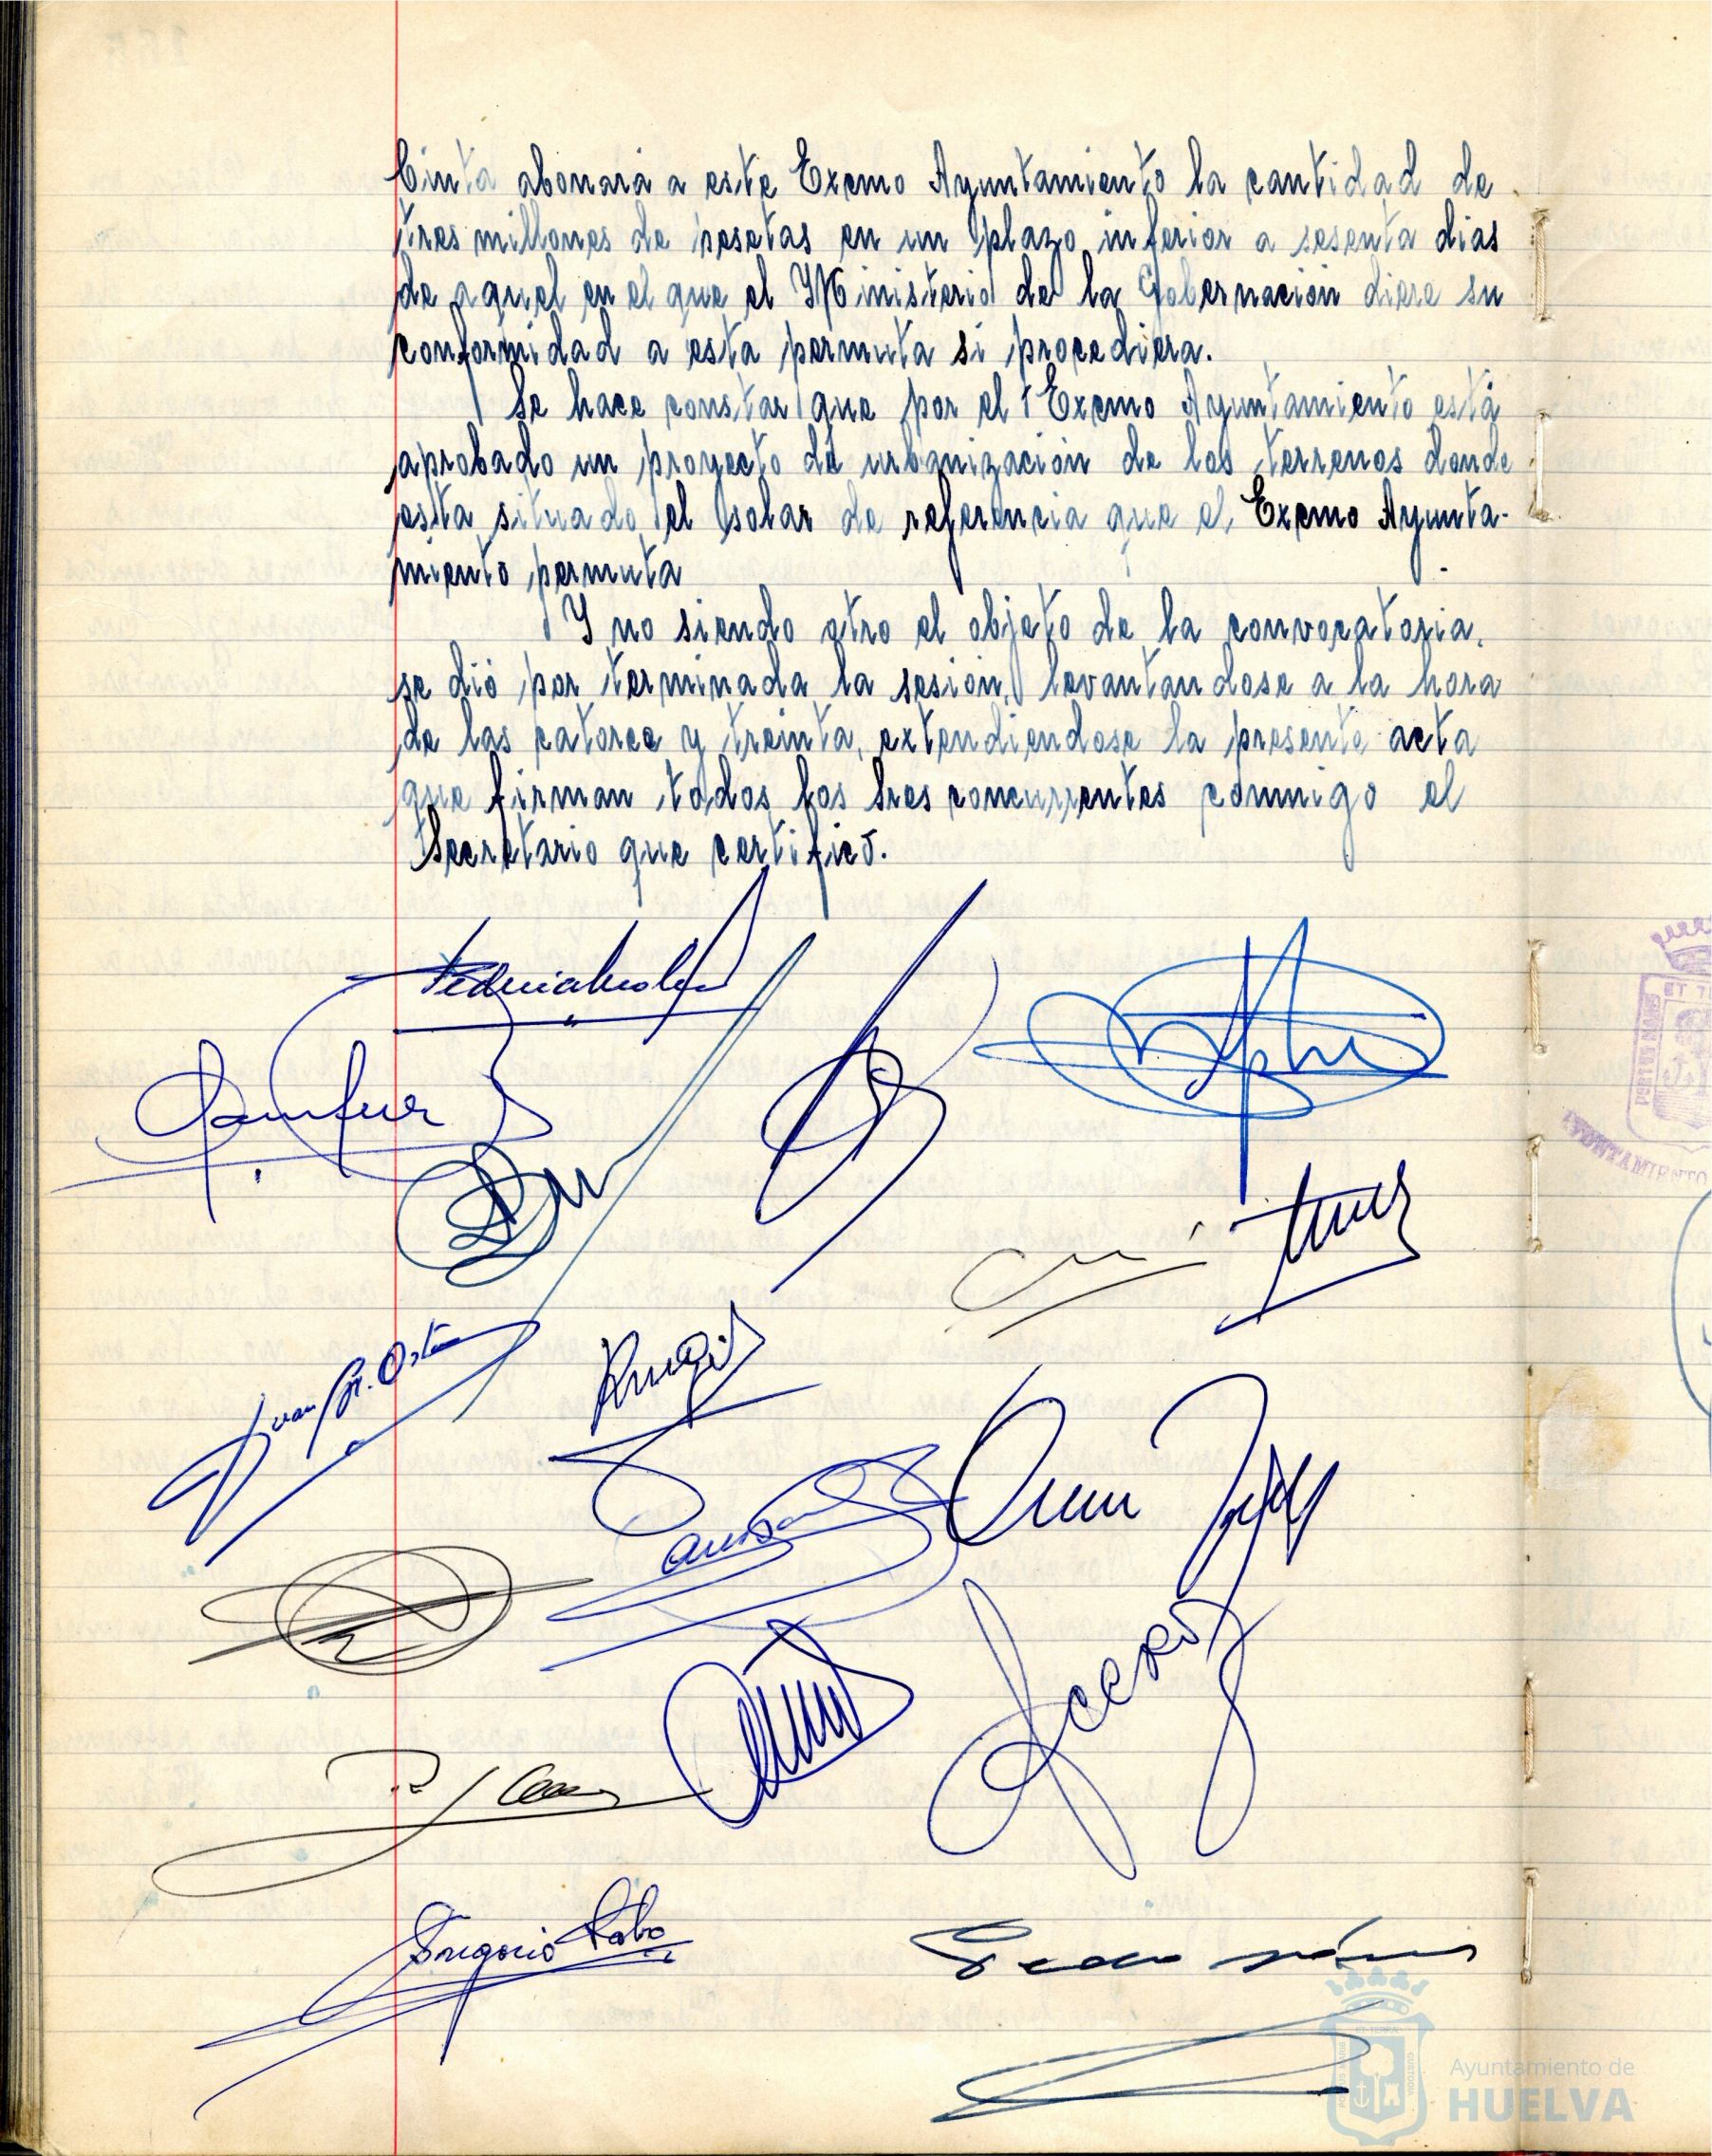 Cinta abonará a este Excmo Ayuntamiento la cantidad de
tres millones de pesetas en un plazo inferior a sesenta dias
de aquel en el que el Ministerio de la Gobernación diere su
conformidad a esta permuta si procediera.
Se hace constar que por el Excmo Ayuntamiento está
aprobado un proyecto de urbanización de los terrenos donde
esta situado el solar de referencia que el Excmo Ayunta-
miento permuta
Y no siendo otro el objeto de la convocatoria,
se dió por terminada la sesión, levantandose a la hora
de las catorce y treinta, extendiendose la presente acta
que firman todos los Sres concurrentes conmigo el
Secretario que certifico.
Juan
Gregorio
PORTUS MARIS
ET T
AYUNTAMIENTO
Ayuntamiento de
HUELVA